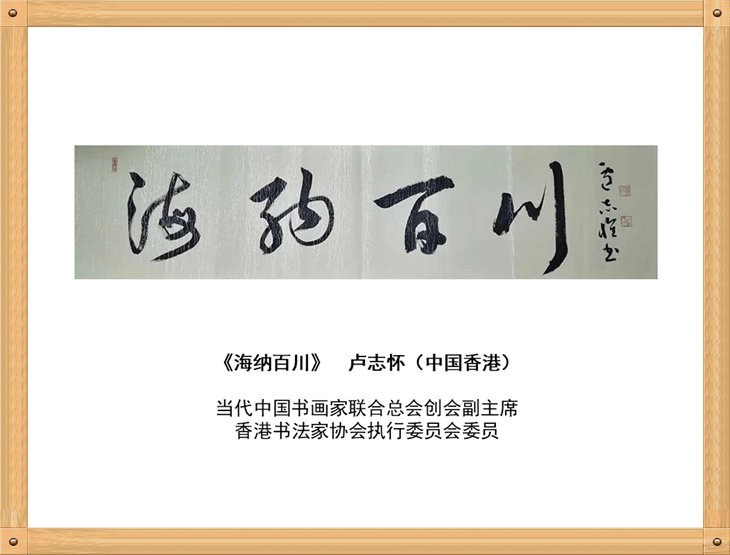 海纳百川
卢志怀书
《海纳百川》 卢志怀（中国香港）
当代中国书画家联合总会创会副主席
香港书法家协会执行委员会委员